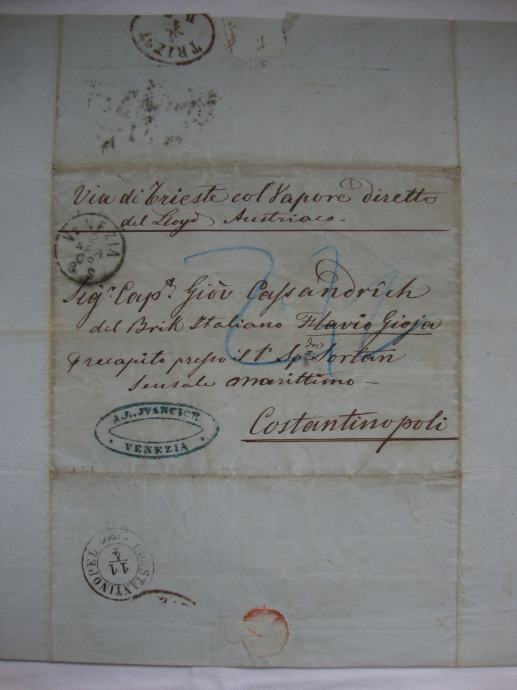 TRIEST
Via di Trieste col Vapore diretto
del Lloyd Austriaco
VENEZIA
Sigr. Capn. Giov Cassandrich
del Brik Italiano Flavio Gioja
recapito presso il Sr Spne Sortan
Sensale marittimo
Costantinopoli
A. L. IVANCICH
VENEZIA
CONSTANTINOPEL
11
4